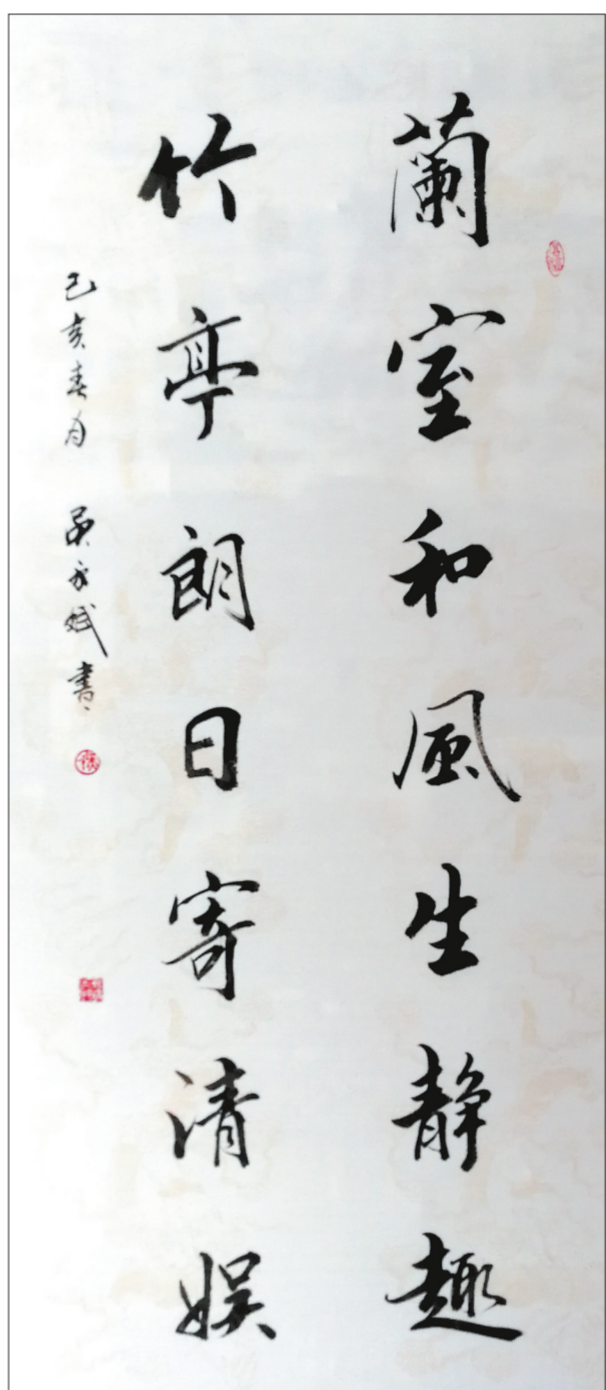 蘭室和風生静趣
竹亭朗日寄清娱
己亥春月 吴永斌書